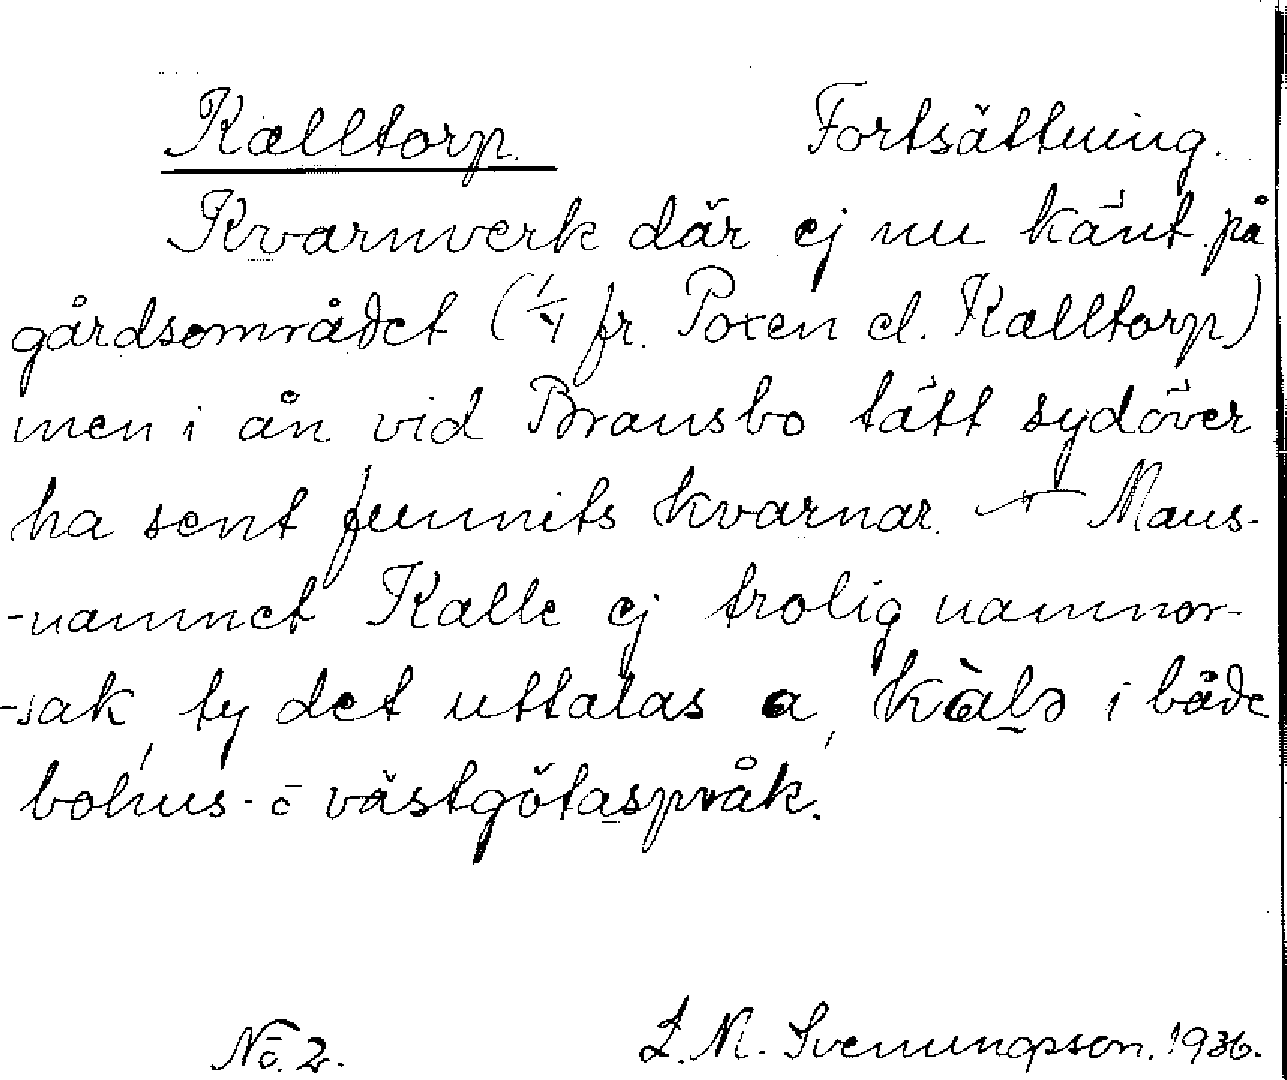 Kalltorp. Fortsättning.
Kvarnverk där ej nu känt på
gårdsområdet (1/4 fr. Poxen el. Kalltorp)
men i ån vid Bransbo tätt sydöver
ha sent funnits kvarnar. — Mans-
-namnet Kalle ej trolig namnor-
-sak, ty det uttalas a, kàlə i både
bohus- o västgötaspråk.
No. 2. L. M. Svenungsson. 1936.